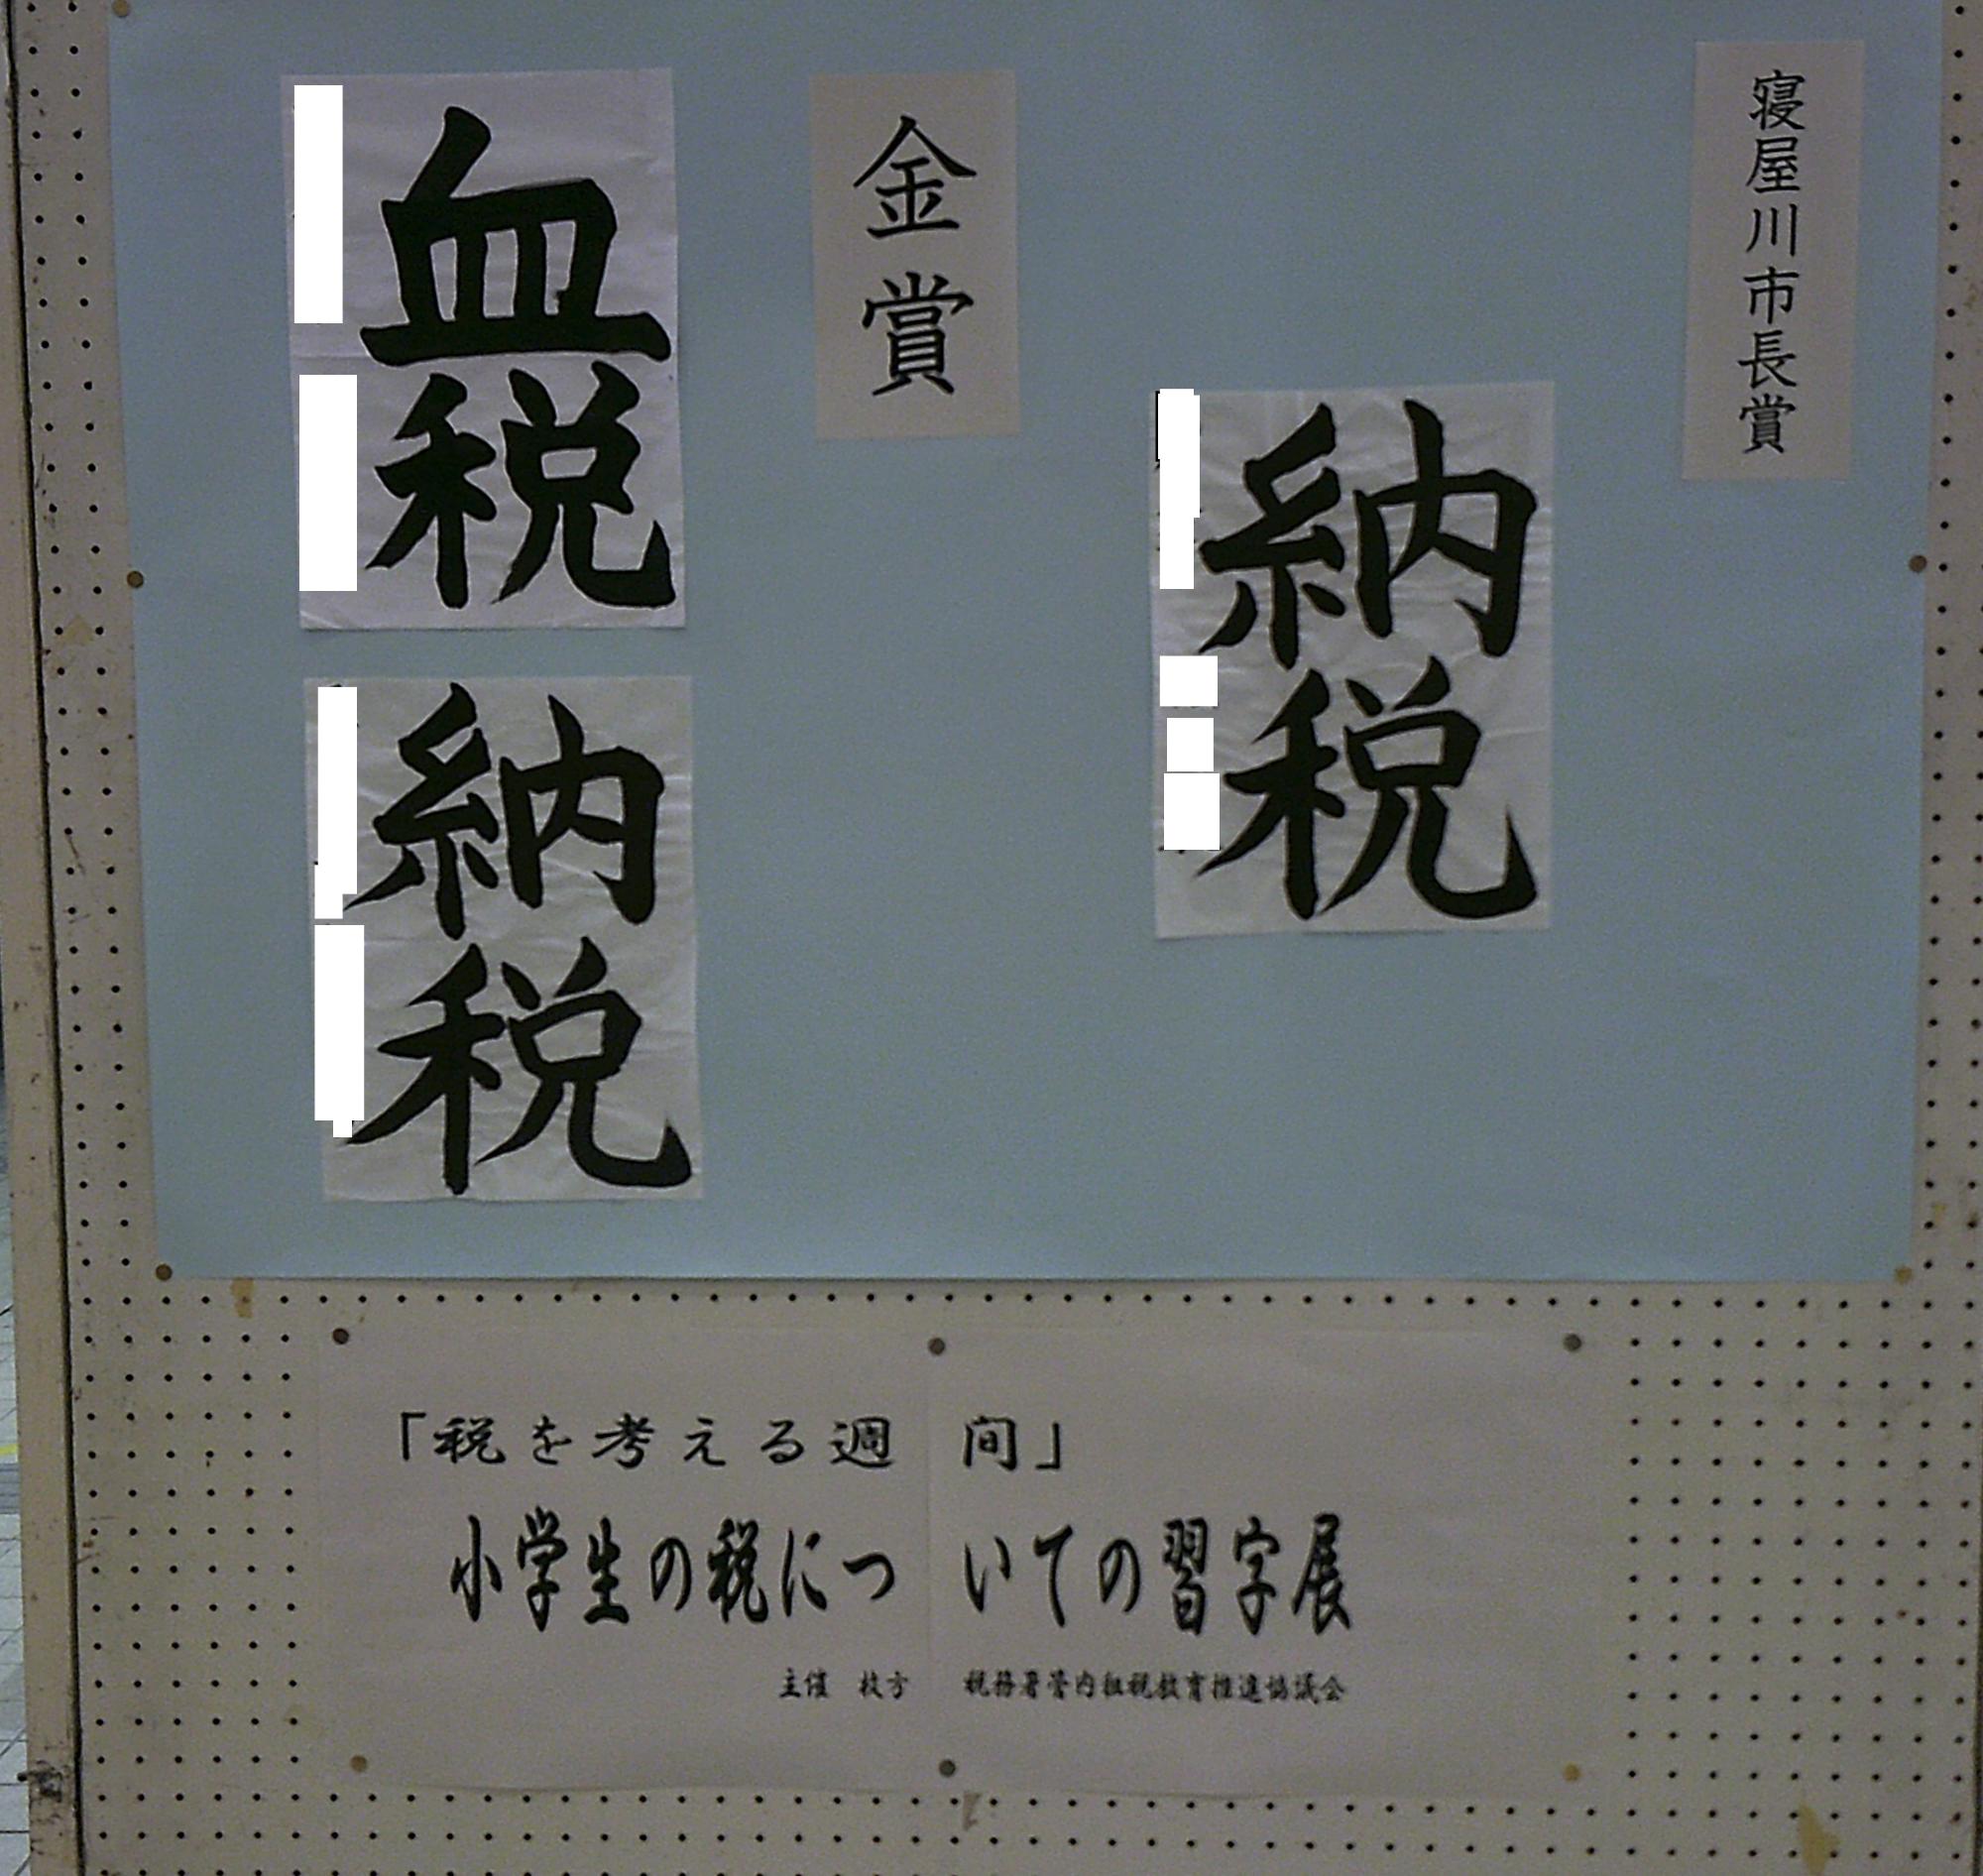 寝屋川市長賞
納税
金賞
血税
納税
「税を考える週間」
小学生の税についての習字展
主催 枚方税務署管内租税教育推進協議会